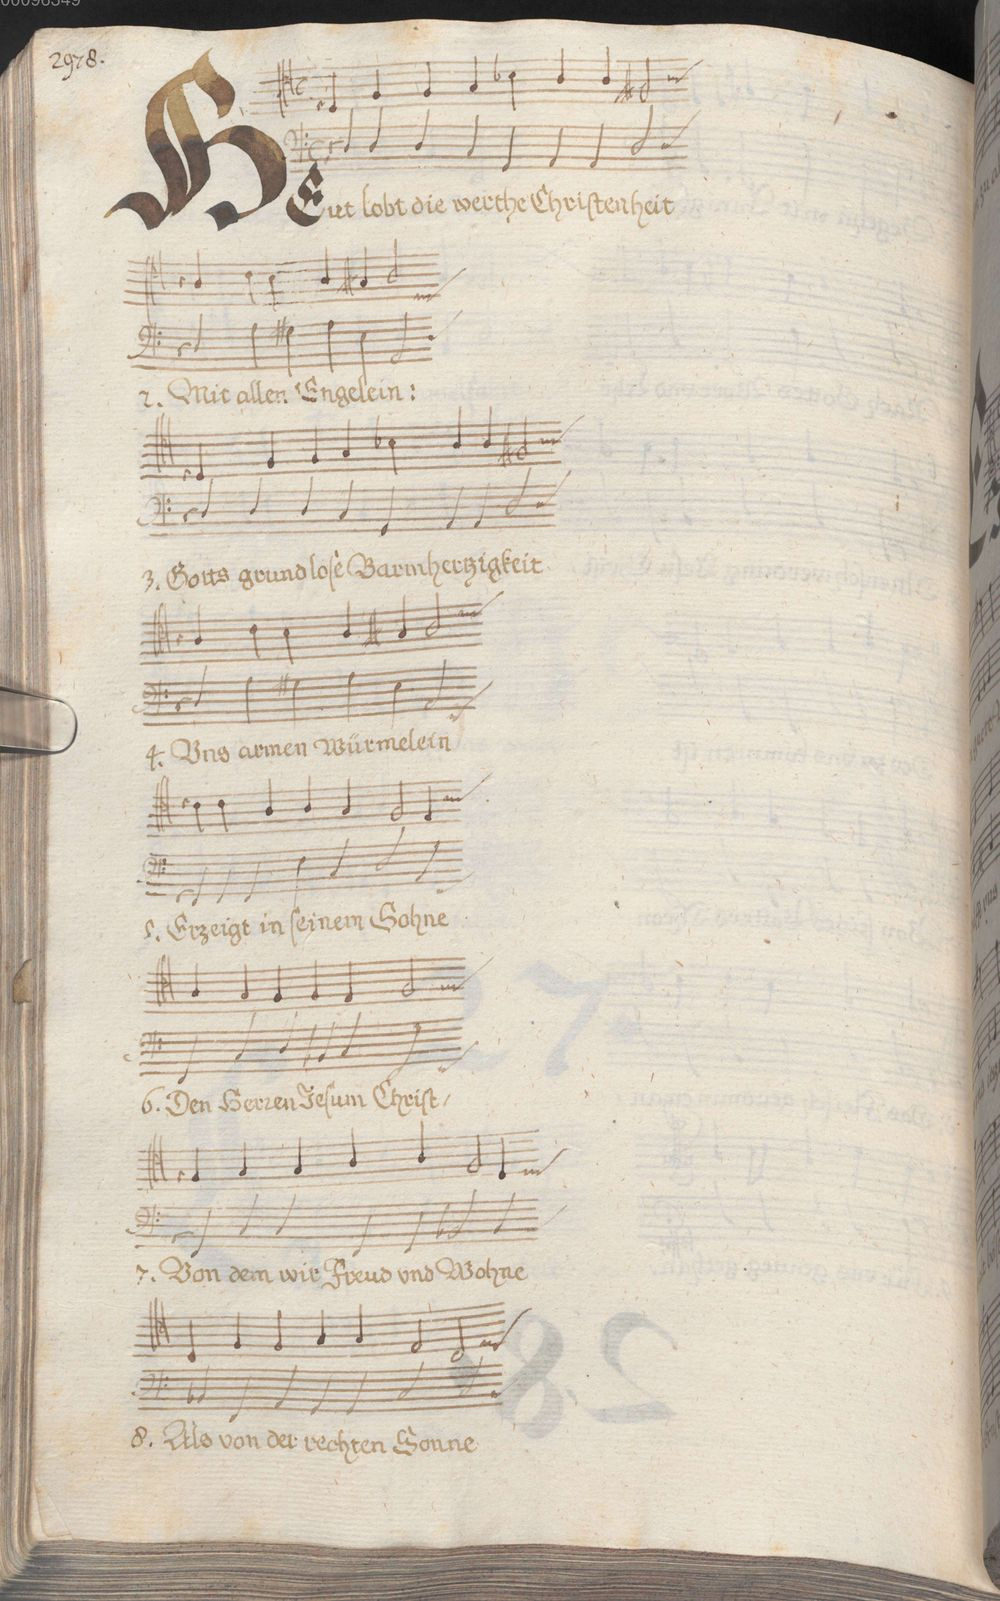 00096349
2978.
HEut lobt die werthe Christenheit
2. Mit allen Engelein:
3. Gotts grundlose Barmhertzigkeit
4. Vns armen Würmelein
5. Erzeigt in seinem Sohne
6. Den Herren Jesum Christ/
7. Von dem wir Freud vnd Wohne
8. Als von der rechten Sonne